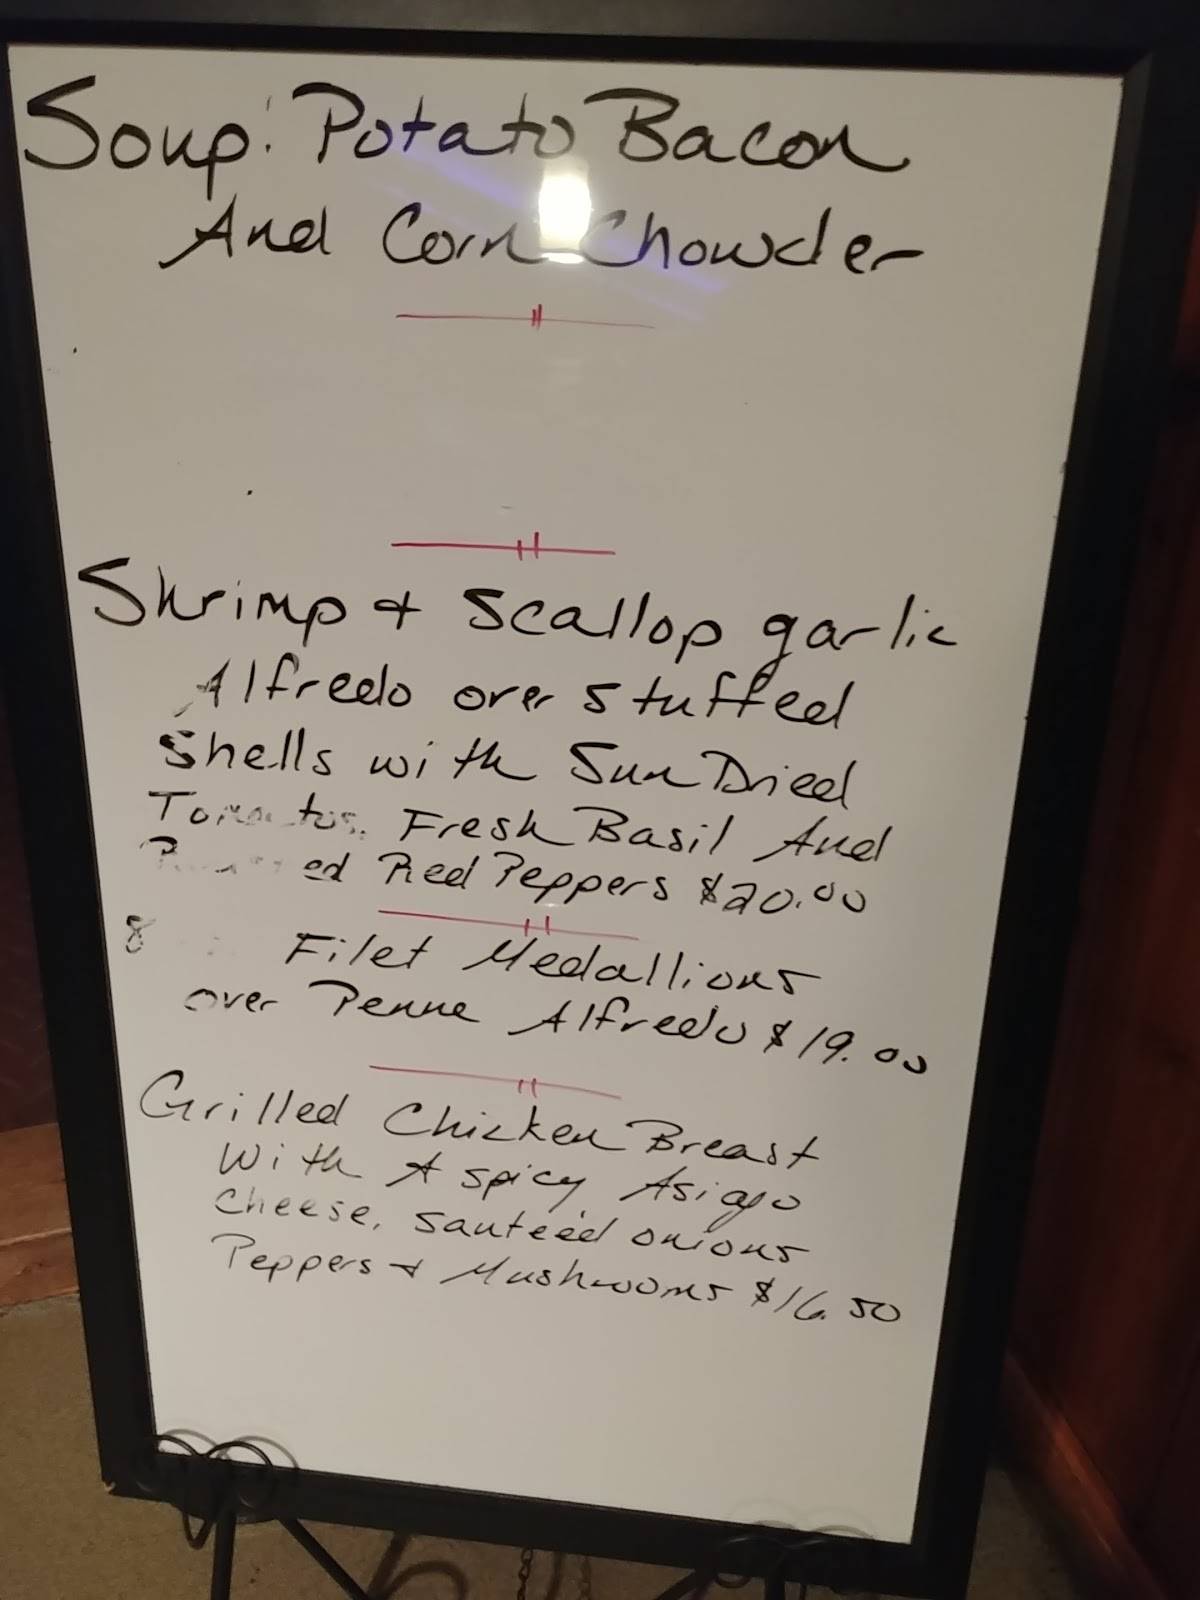 Soup: Potato Bacon
And Corn Chowder
Shrimp + Scallop garlic
Alfredo over stuffed
Shells with Sun Dried
Fresh Basil And
Red Peppers $20.00
8 Filet Medallions
over Penne Alfredo $19.00
Grilled Chicken Breast
With A spicy Asiago
Cheese, sautéed onions
Peppers + Mushrooms $16.50